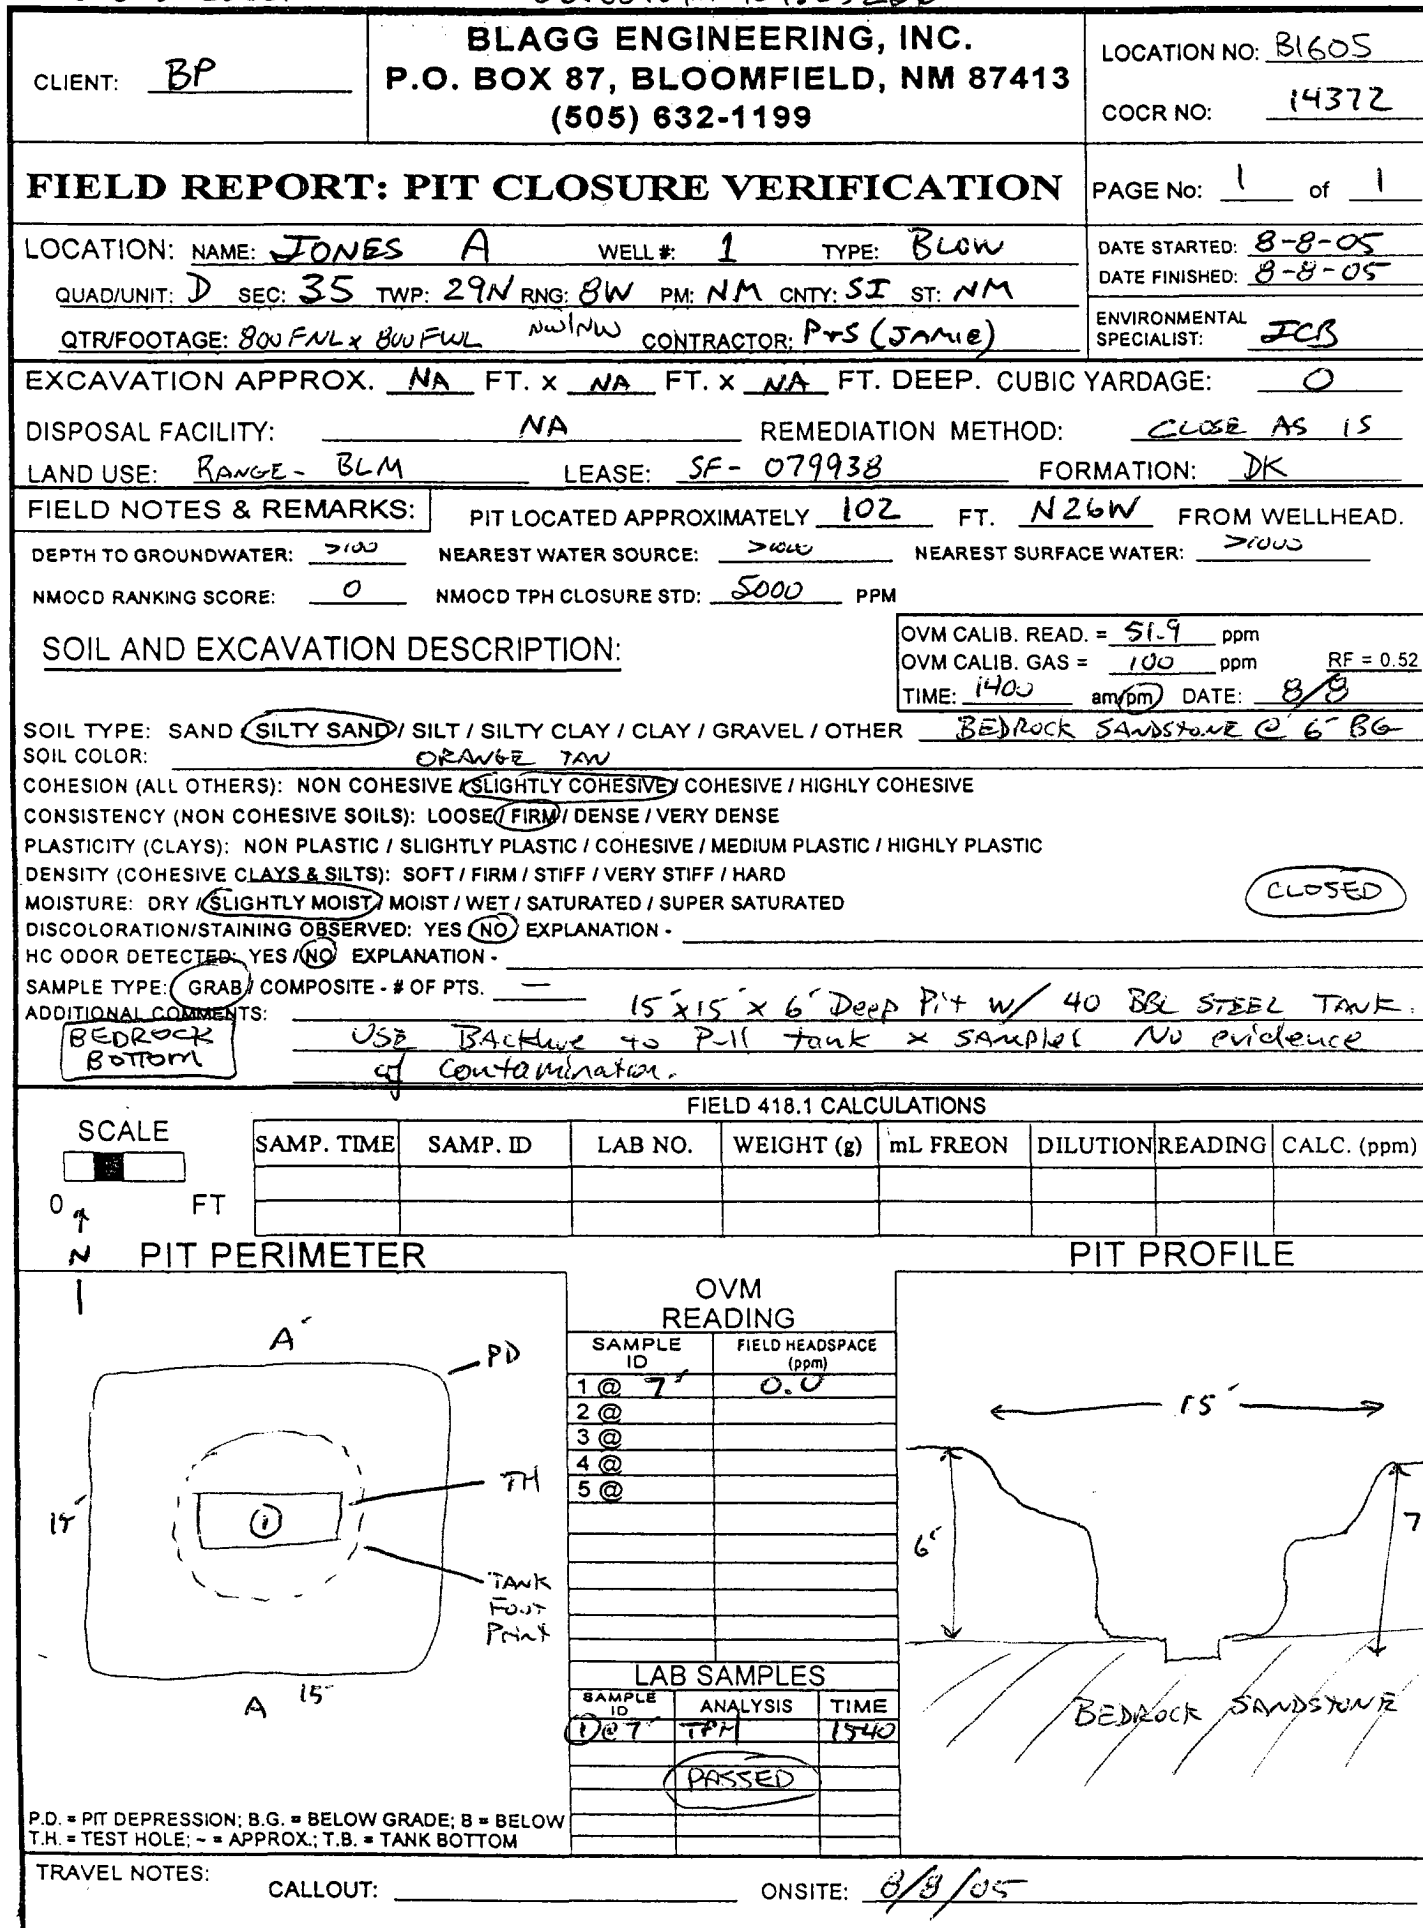 CLIENT: BP
BLAGG ENGINEERING, INC.
P.O. BOX 87, BLOOMFIELD, NM 87413
(505) 632-1199
LOCATION NO: B1605
COCR NO: 14372
FIELD REPORT: PIT CLOSURE VERIFICATION
PAGE No: 1 of 1
LOCATION: NAME: JONES A WELL #: 1 TYPE: BLOW
QUAD/UNIT: D SEC: 35 TWP: 29N RNG: 8W PM: NM CNTY: SJ ST: NM
QTR/FOOTAGE: 800 FNL x 800 FWL NW/NW CONTRACTOR: P+S (JAMIE)
DATE STARTED: 8-8-05
DATE FINISHED: 8-8-05
ENVIRONMENTAL
SPECIALIST: JCB
EXCAVATION APPROX. NA FT. x NA FT. x NA FT. DEEP. CUBIC YARDAGE: 0
DISPOSAL FACILITY: NA REMEDIATION METHOD: CLOSE AS IS
LAND USE: RANGE - BLM LEASE: SF- 079938 FORMATION: DK
FIELD NOTES & REMARKS: PIT LOCATED APPROXIMATELY 102 FT. N26W FROM WELLHEAD.
DEPTH TO GROUNDWATER: >100 NEAREST WATER SOURCE: >1000 NEAREST SURFACE WATER: >1000
NMOCD RANKING SCORE: 0 NMOCD TPH CLOSURE STD: 5000 PPM
SOIL AND EXCAVATION DESCRIPTION:
OVM CALIB. READ. = 51.9 ppm
OVM CALIB. GAS = 100 ppm RF = 0.52
TIME: 1400 am/pm DATE: 8/8
SOIL TYPE: SAND / SILTY SAND / SILT / SILTY CLAY / CLAY / GRAVEL / OTHER BEDROCK SANDSTONE @ 6' BG
SOIL COLOR: ORANGE TAN
COHESION (ALL OTHERS): NON COHESIVE / SLIGHTLY COHESIVE / COHESIVE / HIGHLY COHESIVE
CONSISTENCY (NON COHESIVE SOILS): LOOSE / FIRM / DENSE / VERY DENSE
PLASTICITY (CLAYS): NON PLASTIC / SLIGHTLY PLASTIC / COHESIVE / MEDIUM PLASTIC / HIGHLY PLASTIC
DENSITY (COHESIVE CLAYS & SILTS): SOFT / FIRM / STIFF / VERY STIFF / HARD
MOISTURE: DRY / SLIGHTLY MOIST / MOIST / WET / SATURATED / SUPER SATURATED
CLOSED
DISCOLORATION/STAINING OBSERVED: YES / NO EXPLANATION -
HC ODOR DETECTED: YES / NO EXPLANATION -
SAMPLE TYPE: GRAB / COMPOSITE - # OF PTS. —
ADDITIONAL COMMENTS: 15'x15' x 6' Deep Pit w/ 40 BBL STEEL TANK.
BEDROCK BOTTOM
USE BAckhoe to Pull tank & SAMPLE No evidence
of contamination.
FIELD 418.1 CALCULATIONS
SCALE
0 FT
SAMP. TIME SAMP. ID LAB NO. WEIGHT (g) mL FREON DILUTION READING CALC. (ppm)
N
PIT PERIMETER
A'
PD
TH
1
15'
TANK
Foot
Print
A 15'
P.D. = PIT DEPRESSION; B.G. = BELOW GRADE; B = BELOW
T.H. = TEST HOLE; ~ = APPROX.; T.B. = TANK BOTTOM
OVM
READING
SAMPLE ID FIELD HEADSPACE (ppm)
1 @ 7' 0.0
2 @
3 @
4 @
5 @
LAB SAMPLES
SAMPLE ID ANALYSIS TIME
1@7' TPH 1540
PASSED
PIT PROFILE
15'
6'
7
BEDROCK SANDSTONE
TRAVEL NOTES: CALLOUT: ONSITE: 8/8/05